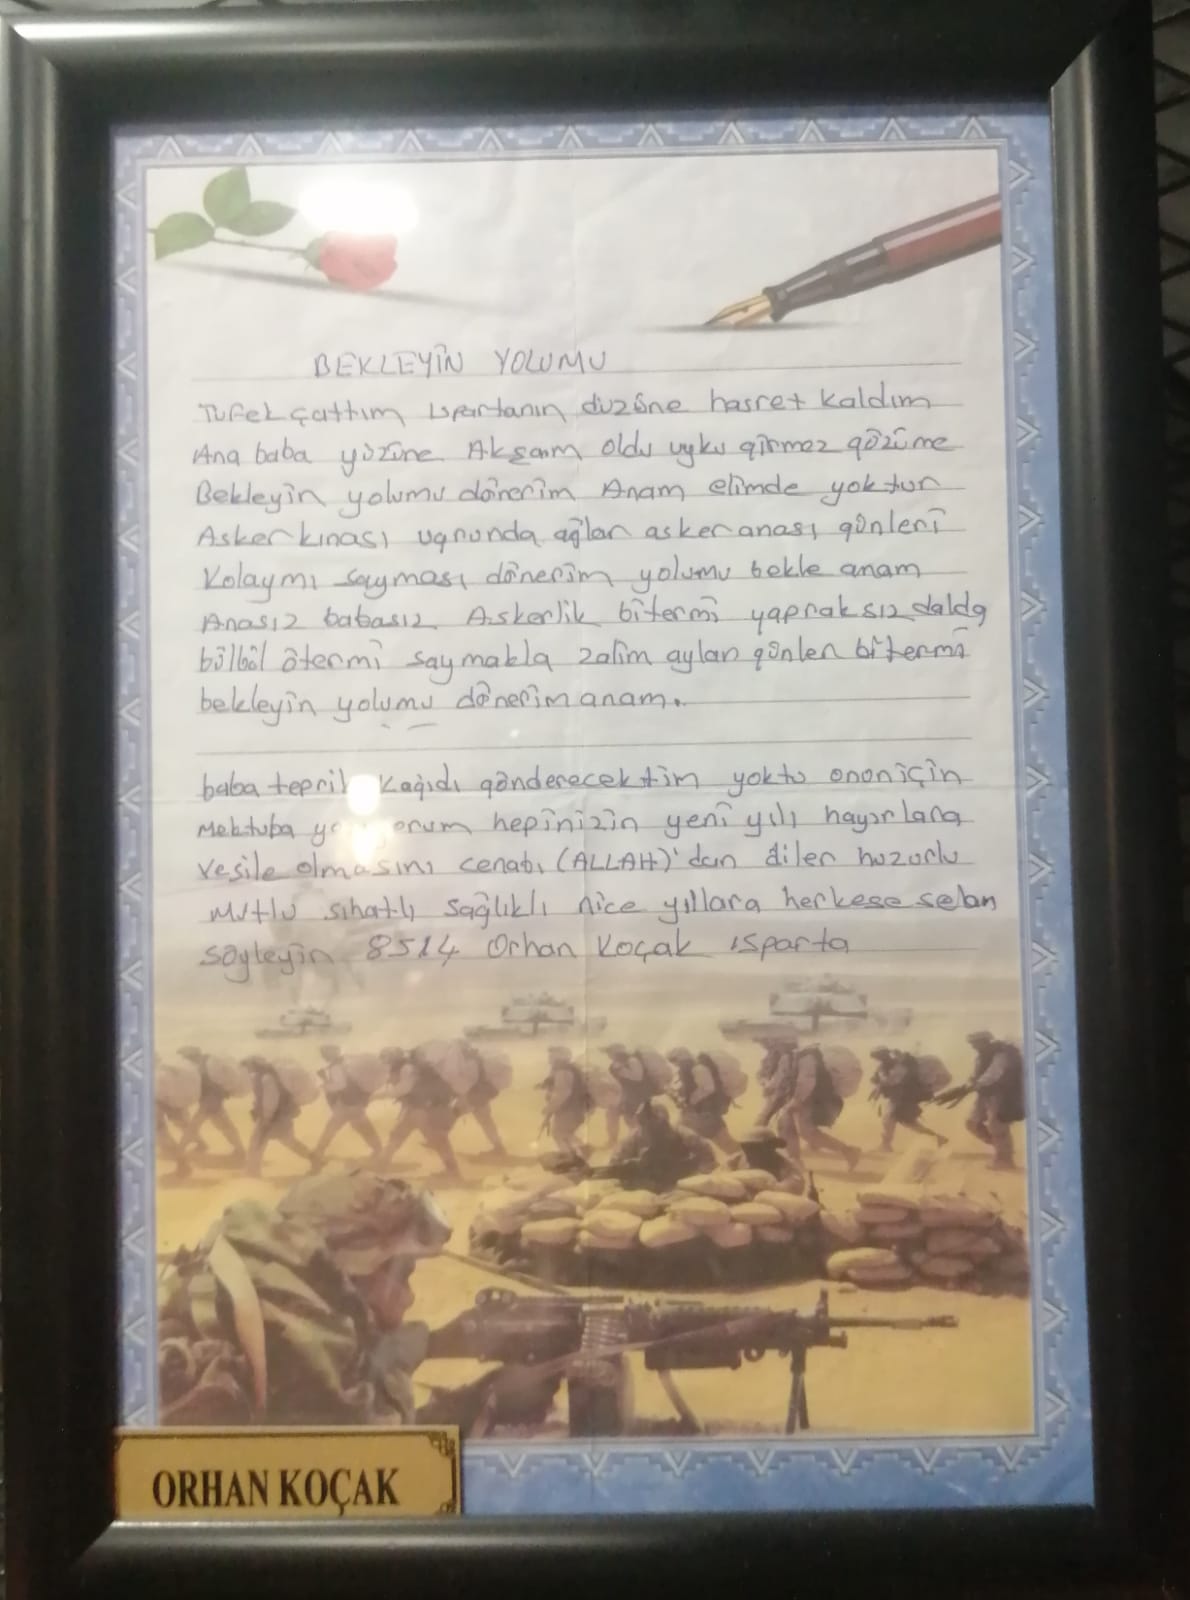 BEKLEYİN YOLUMU
Tüfek çattım ıspartanın düzüne hasret kaldım
Ana baba yüzüne Akşam oldu uyku girmez gözüme
Bekleyin yolumu dönerim Anam elimde yoktur
Asker kınası uğrunda ağlar asker anası günleri
Kolaymı sayması dönerim yolumu bekle anam
Anasız babasız Askerlik bitermi yapraksız dalda
bülbül ötermi saymakla zalim aylar günler bitermi
bekleyin yolumu dönerim anam.
baba tepril kağıdı gönderecektim yoktu onun için
Mektuba hepinizin yeni yılı hayırlara
vesile olmasını cenabı (ALLAH)'dan diler huzurlu
Mutlu sıhatlı sağlıklı nice yıllara herkese selam
söyleyin 8514 Orhan Koçak ısparta
ORHAN KOÇAK